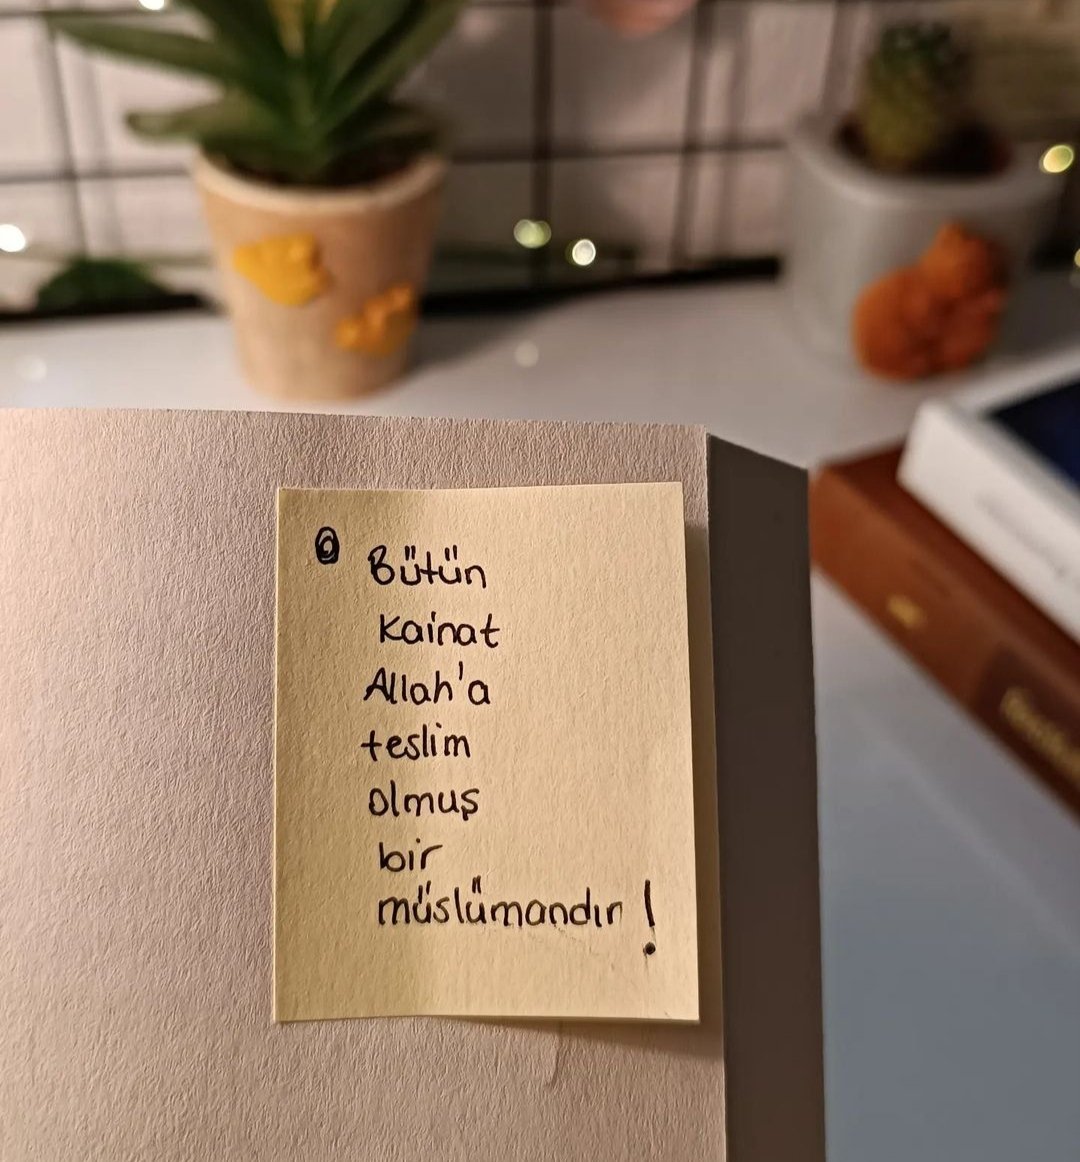 Bütün
Kainat
Allah'a
teslim
olmuş
bir
müslümandır!